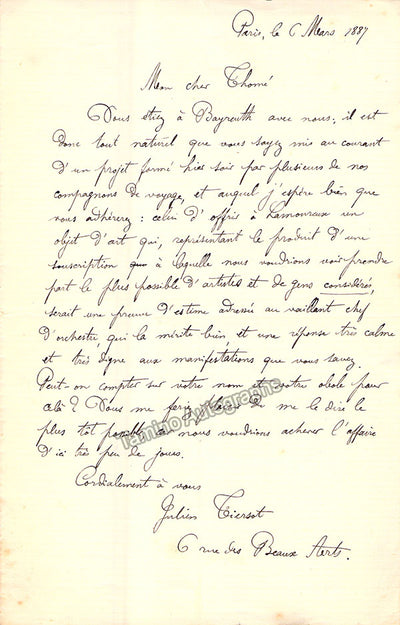 Paris, le 6 Mars 1887
Mon cher Thomé
Vous étiez à Bayreuth avec nous ; il est
donc tout naturel que vous soyez mis au courant
d'un projet formé hier soir par plusieurs de nos
compagnons de voyage, et auquel j'espère bien que
vous adhérerez : celui d'offrir à Lamoureux un
objet d'art qui, représentant le produit d'une
souscription à laquelle nous voudrions voir prendre
part le plus possible d'artistes et de gens considérés,
serait une preuve d'estime adressée au vaillant chef
d'orchestre, qui la mérite bien, et une réponse très calme
et très digne aux manifestations que vous savez.
Peut-on compter sur votre nom et votre obole pour
cela ? Vous me feriez plaisir de me le dire le
plus tôt possible, nous voudrions achever l'affaire
d'ici très peu de jours.
Cordialement à vous
Julien Tiersot
6 rue des Beaux Arts.
Tamino Autographs